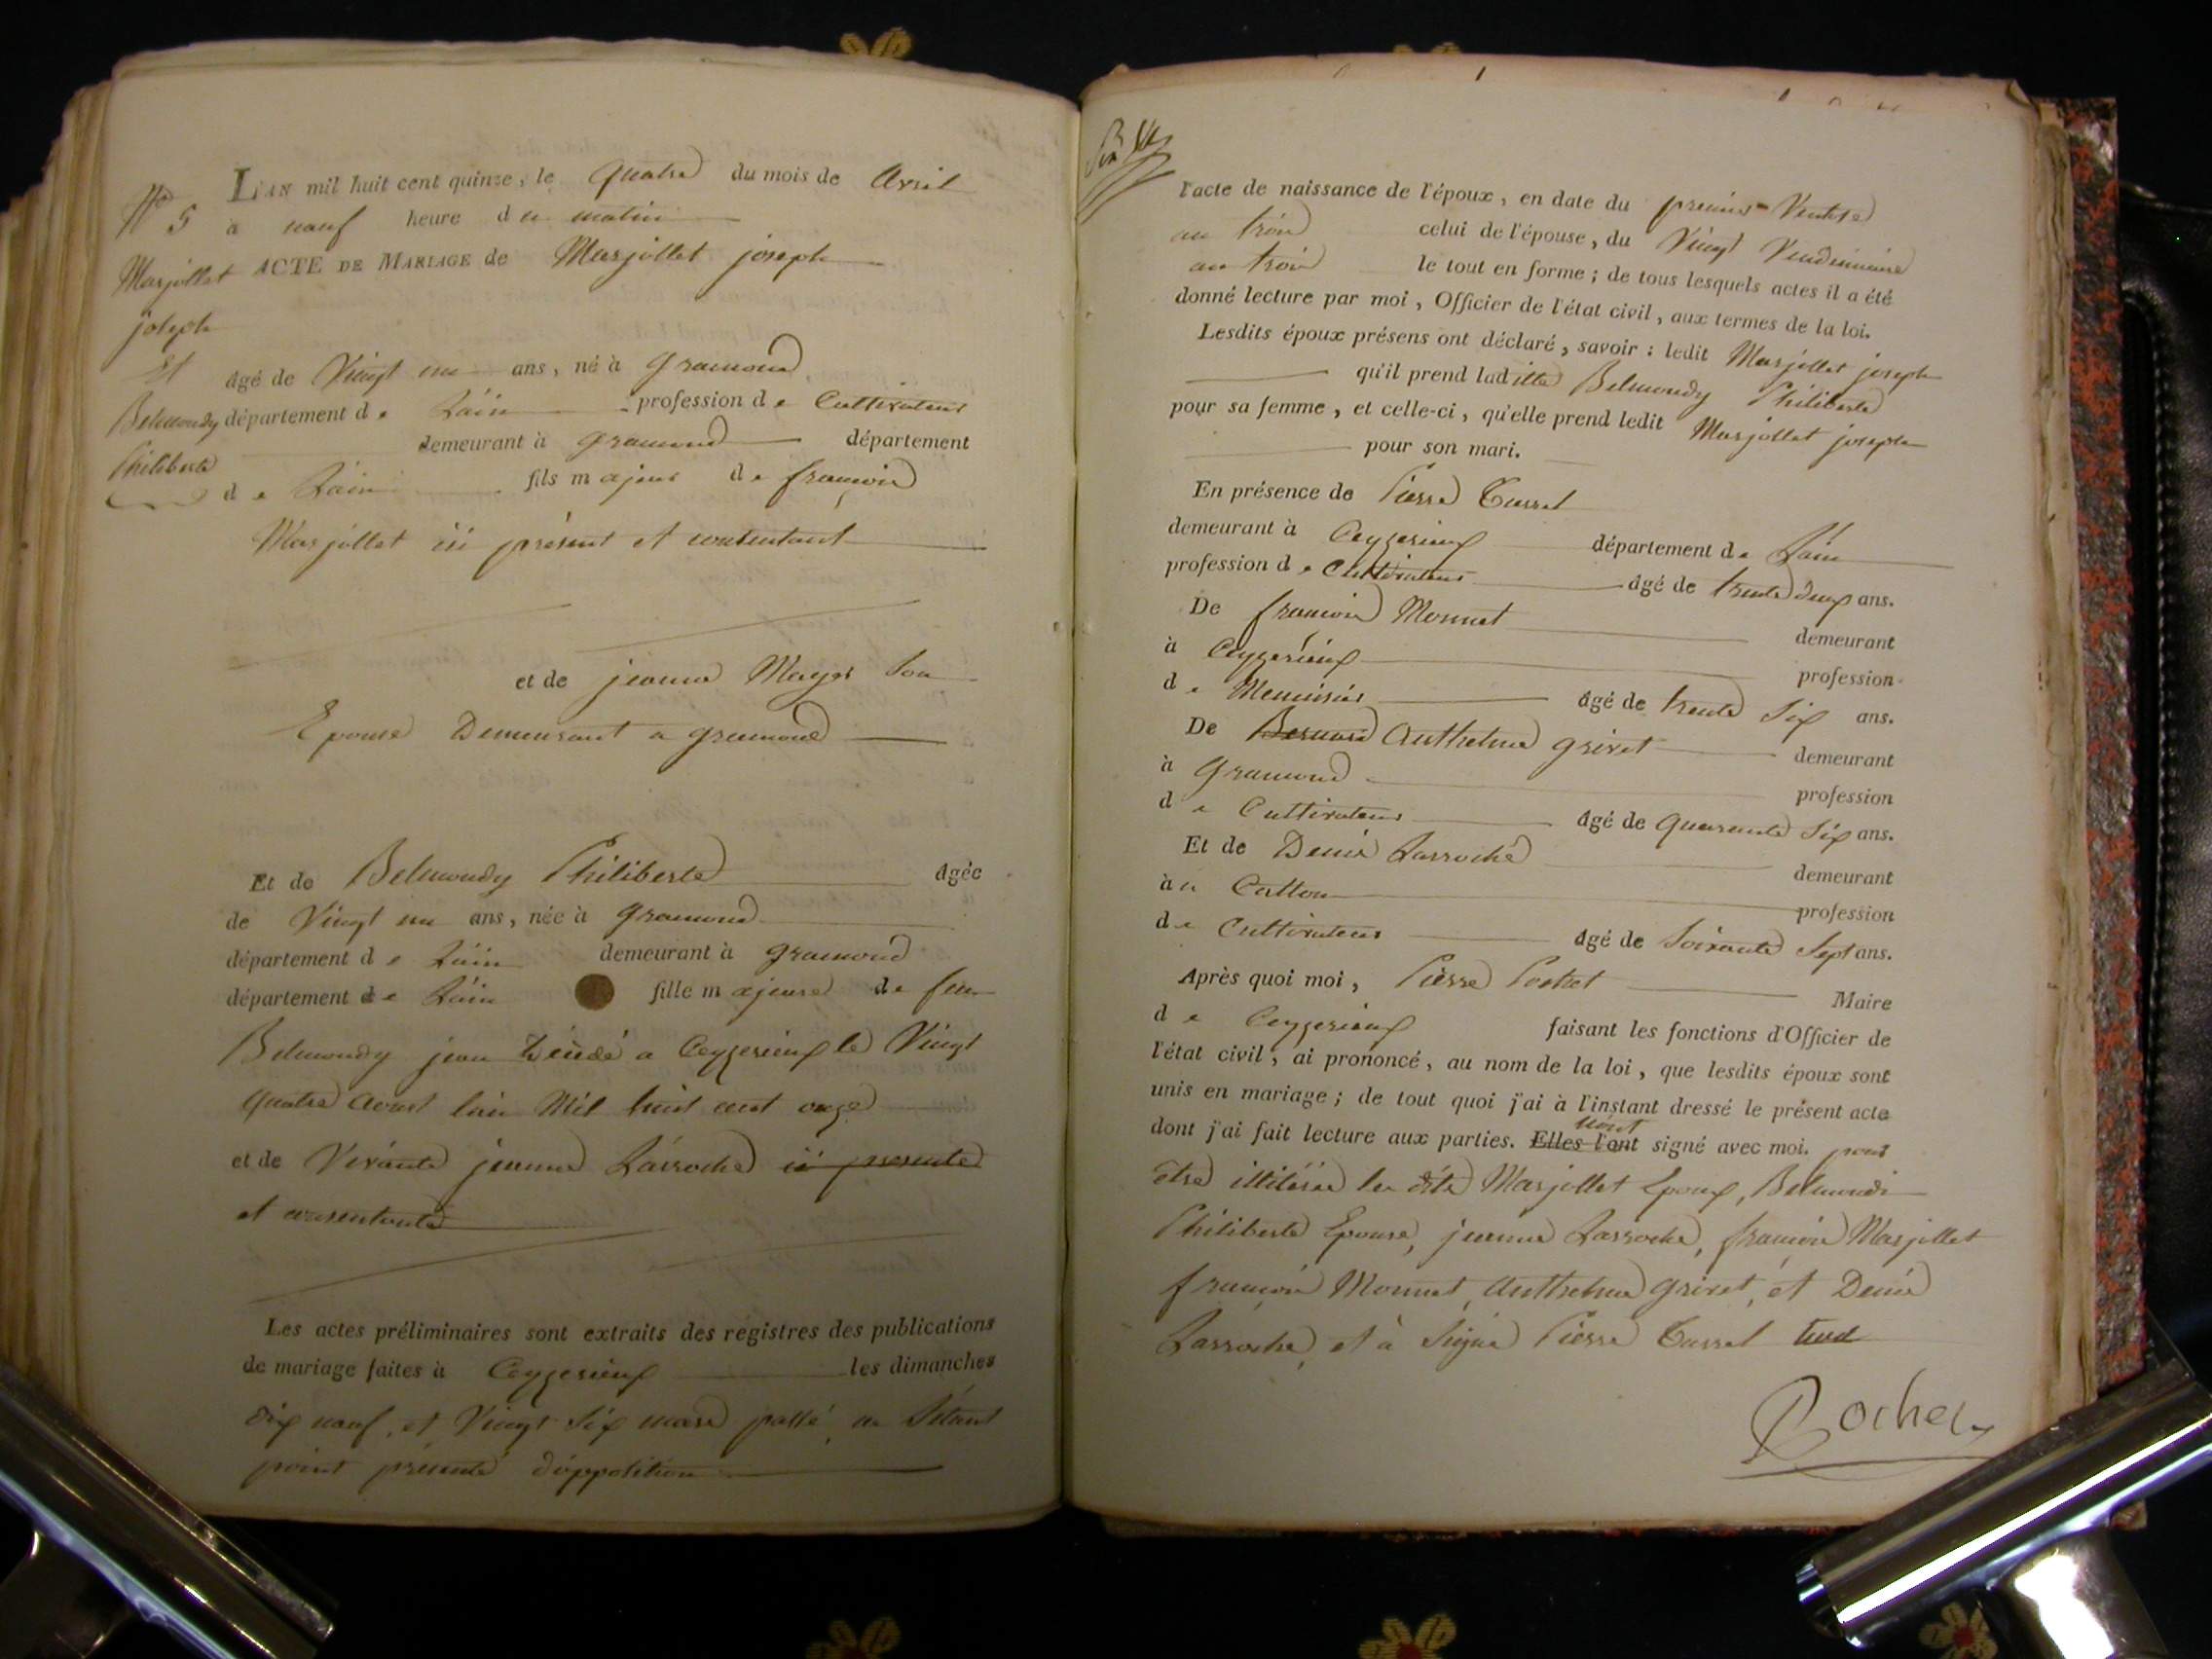 L'an mil huit cent quinze, le quatre du mois de Avril
No 5
à neuf heure du matin
ACTE DE MARIAGE de Marjollet joseph
Marjollet
joseph
Et
Belmondy
Philiberte
âgé de Vingt un ans, né à gramond
département de Lain profession de Cultivateur
demeurant à gramond département
de Lain fils majeur de françoi
Marjollet ici présent et consentant
et de jeanne Mayer Son
Epouse Demeurant a gramond
Et de Belmondy Philiberte âgée
de Vingt un ans, née à gramond
département de Lain demeurant à gramond
département de Lain fille majeure de feu
Belmondy jean décédé a Ceyzerieux le Vingt
quatre Aoust lan Mil huit cent onze
et de Vivante jeanne Larroche ici presente
et consentente
Les actes préliminaires sont extraits des régistres des publications
de mariage faites à Ceyzerieux les dimanches
dix neuf, et Vingt Six mars passé, ne Sétant
point présenté dopposition
l'acte de naissance de l'époux, en date du premier Ventose
an trois celui de l'épouse, du Vingt Vendemiaire
an trois le tout en forme ; de tous lesquels actes il a été
donné lecture par moi, Officier de l'état civil, aux termes de la loi.
Lesdits époux présens ont déclaré, savoir : ledit Marjollet joseph
qu'il prend laditte Belmondy Philiberte
pour sa femme, et celle-ci, qu'elle prend ledit Marjollet joseph
pour son mari.
En présence de Pierre Carrel
demeurant à Ceyzerieux département de Lain
profession de Cultivateur âgé de trente deux ans.
De françoi Monnet demeurant
à Ceyzerieux profession
de Menuisier âgé de trente Six ans.
De Bernard Anthelme grivet demeurant
à Gramond profession
de Cultivateur âgé de quarante Six ans.
Et de Denis Larroche demeurant
à a Catton profession
de Cultivateur âgé de Soixante Sept ans.
Après quoi moi, Pierre Pochet Maire
de Ceyzerieux faisant les fonctions d'Officier de
l'état civil, ai prononcé, au nom de la loi, que lesdits époux sont
unis en mariage ; de tout quoi j'ai à l'instant dressé le présent acte
dont j'ai fait lecture aux parties. Elles l'ont nont signé avec moi. pour
etre illiterée le dite Marjollet Epoux, Belmondi
Philiberte Epouse, jeanne Larroche, françoi Marjollet
françoi Monnet, Anthelme grivet, et Denis
Larroche, et à Signé Pierre Carrel
Pochet